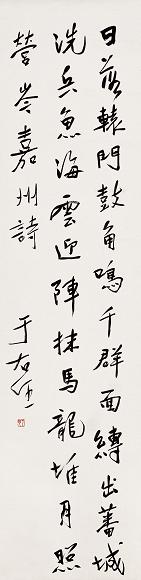 日落轅門鼓角鳴千群面縛出蕃城
洗兵魚海雲迎陣抹馬龍堆月照
營岑嘉州詩
于右任